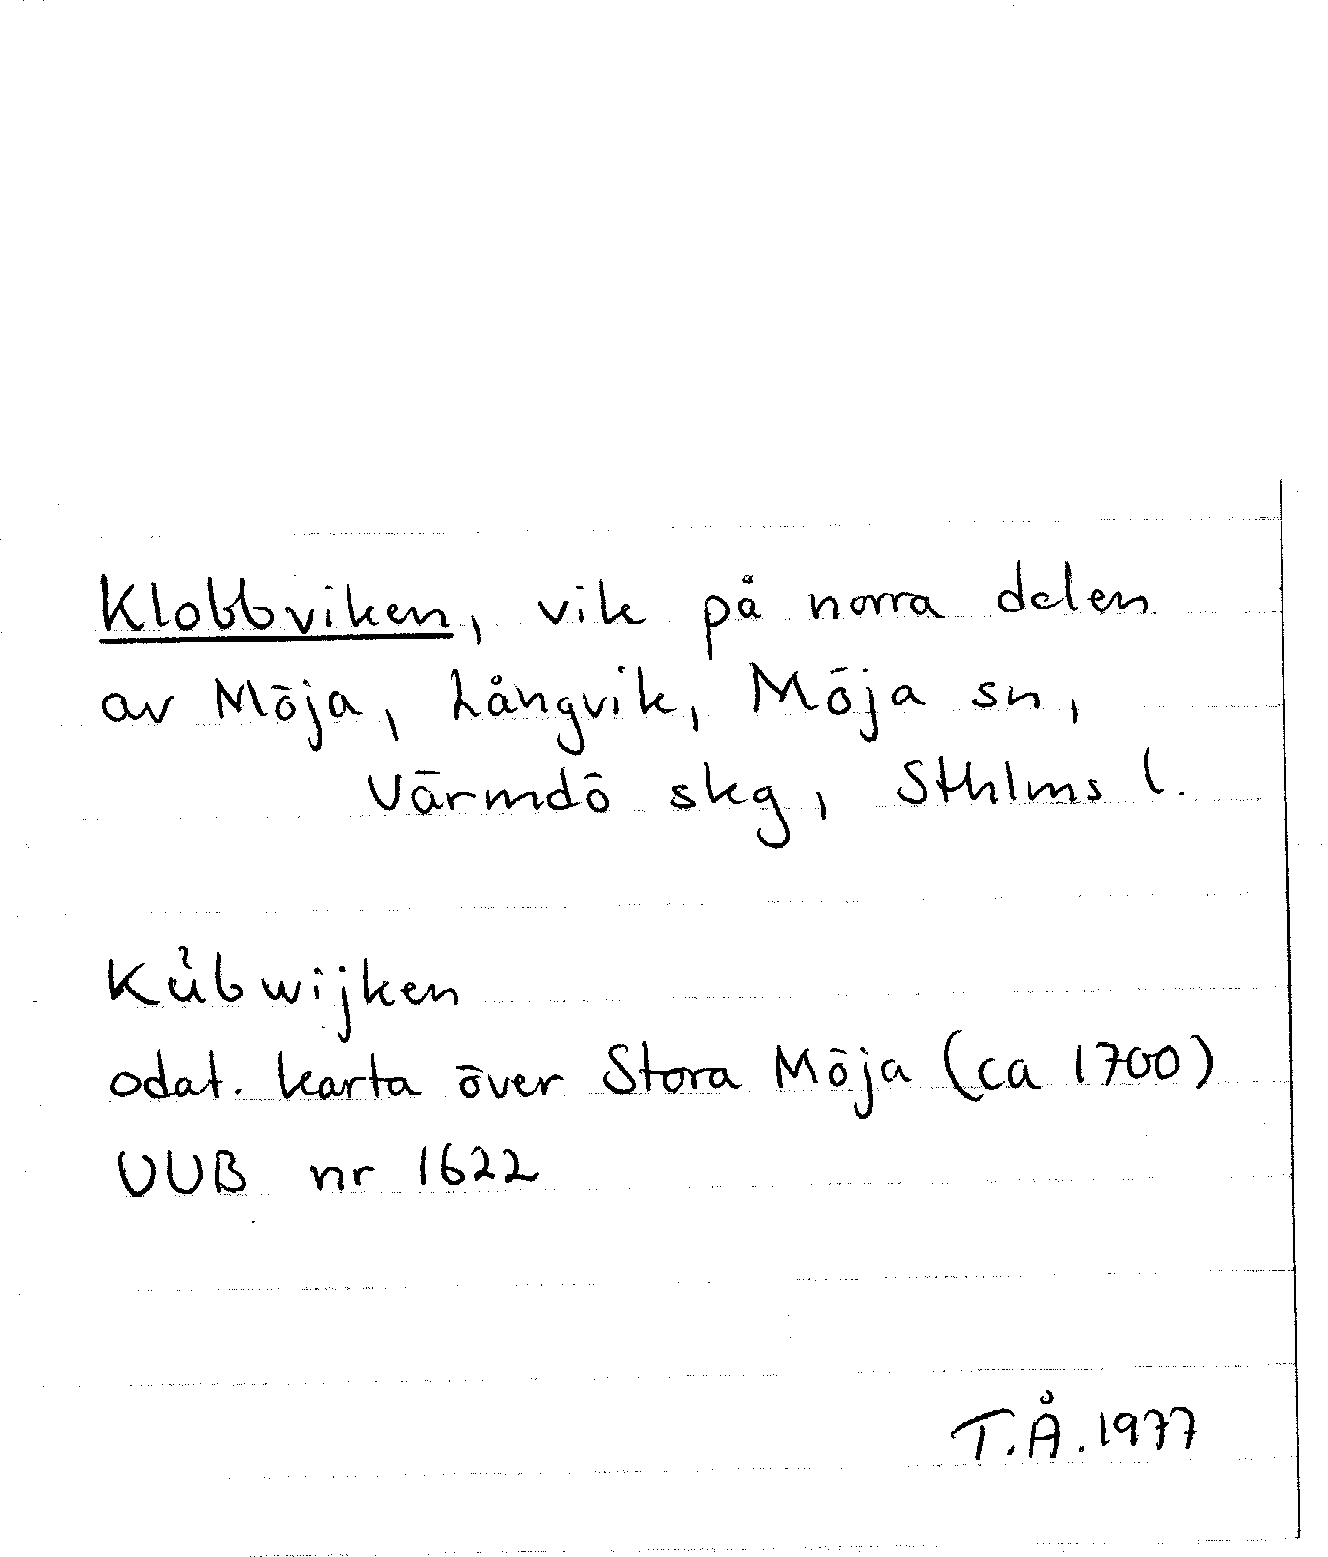 Klobbviken, vik på norra delen
av Möja, Långvik, Möja sn,
Värmdö skg, Sthlms l.
Kůbwijken
odat. karta över Stora Möja (ca 1700)
UUB nr 1622
T.Å.1977